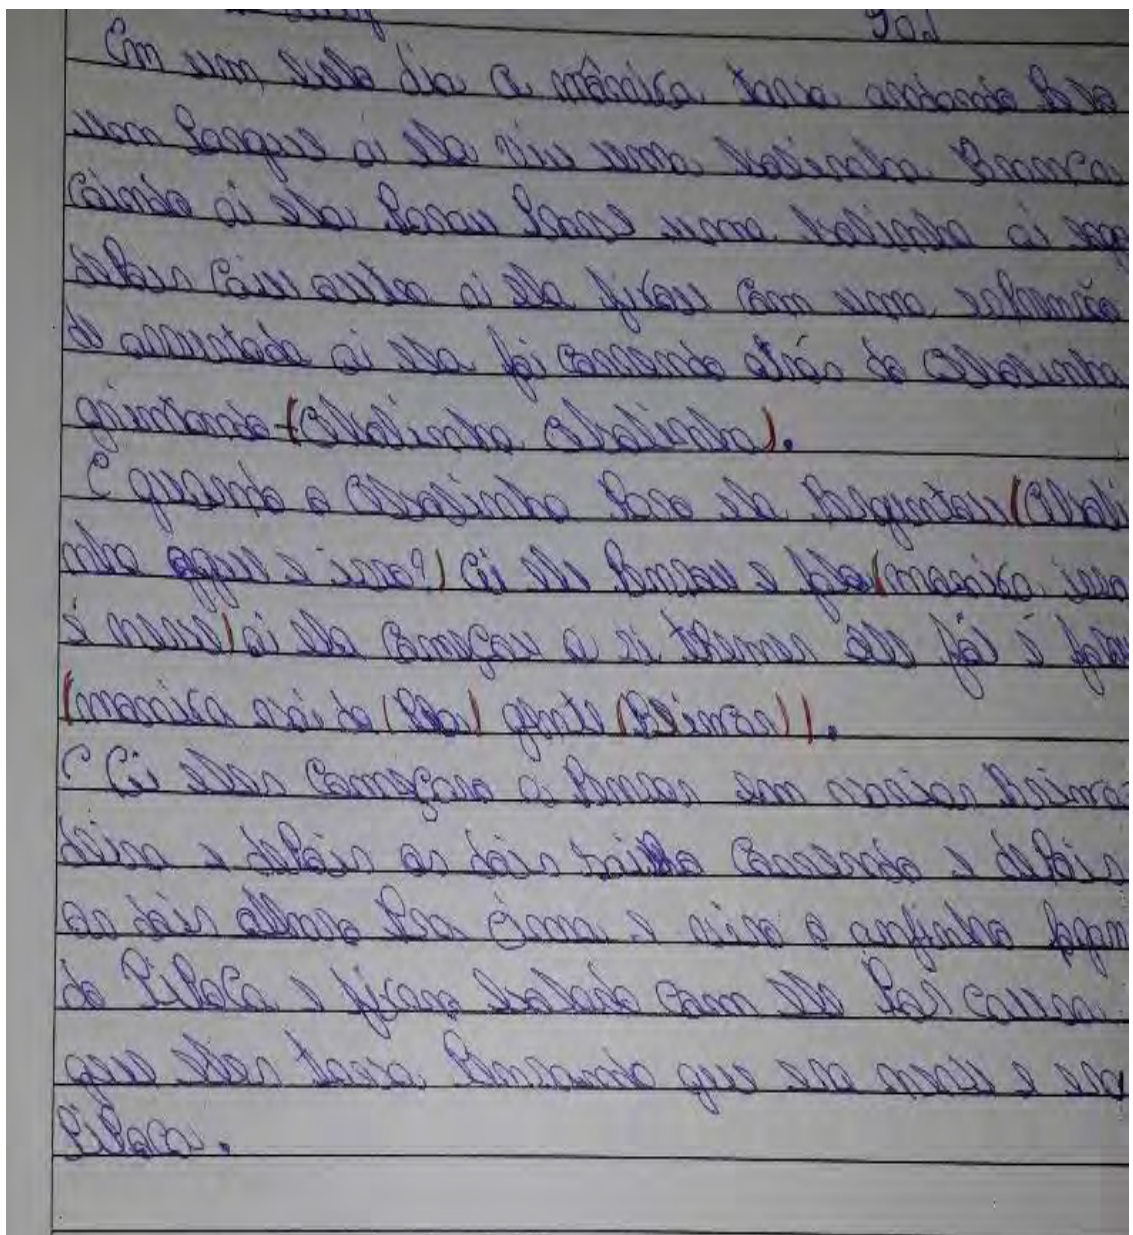 Em um belo dia a mônica tava andando Pelo
um Parque ai ela viu uma bolinha Branca
Caindo ai ela Pegou uma bolinha ai
dePois Caiu outra ai ela ficou Com uma
de assustada ai ela foi Correndo atrás do Cebolinha
gritando (Cebolinha Cebolinha).
E quando o Cebolinha Paro ela Perguntou (Ceboli
nha oque e isso?) Ai ele Pensou e falo (monica isso
é neve) ai ela Começou a si tremer ele foi é falou
(monica vai da (Pra) gente (Brincar)).
E Ai eles Começaro a Pensar em varias Brinca
deira e dePois os dois Correndo e dePois
os dois olharo Pra Cima e viro o anjinho jogan
do PiPoca e ficaro bolado Com ele Por Causa
que eles tava Pensando que era neve e era
PiPoca.